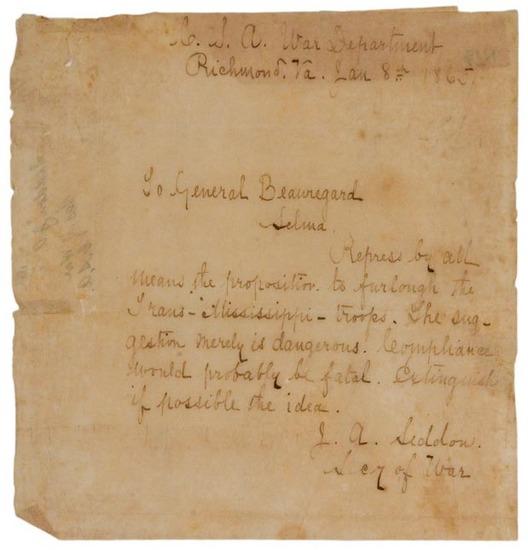 C. S. A. War Department
Richmond. Va. Jan 8th 1865.
To General Beauregard
Selma.
Repress by all
means the proposition to furlough the
Trans-Mississippi-troops. The sug-
gestion merely is dangerous. Compliance
would probably be fatal. Extinguish
if possible the idea.
J. A. Seddon.
Secy of War